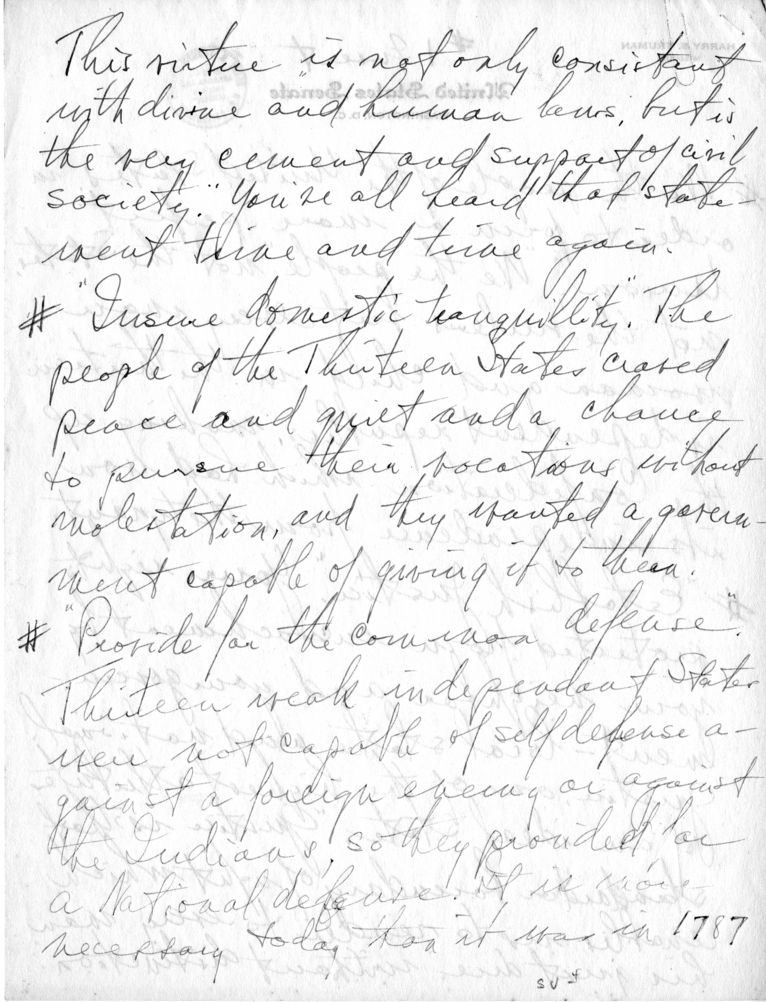 This virtue is not only consistant
with divine and human laws, but is
the very cement and support of civil
society." You've all heard that state-
ment time and time again.
# "Insure domestic tranquillity". The
people of the Thirteen States craved
peace and quiet and a chance
to pursue their vocations without
molestation, and they wanted a govern-
ment capable of giving it to them.
# "Provide for the common defense".
Thirteen weak independant States
were not capable of self defense a-
gainst a foreign enemy or against
the Indians, so they provided for
a National defense. It is more
necessary today than it was in 1787